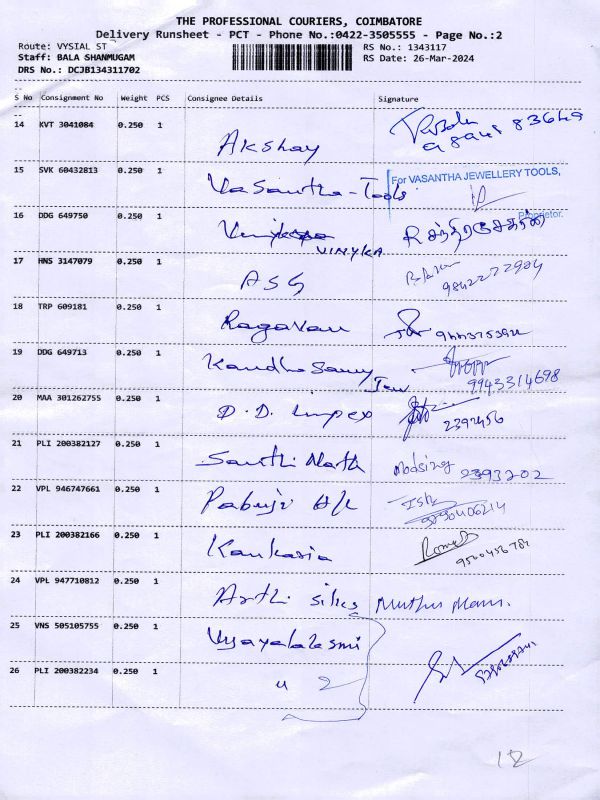 THE PROFESSIONAL COURIERS, COIMBATORE
Delivery Runsheet - PCT - Phone No.:0422-3505555 - Page No.:2
Route: VYSIAL ST RS No.: 1343117
Staff: BALA SHANMUGAM RS Date: 26-Mar-2024
DRS No.: DCJB134311702
S No Consignment No Weight PCS Consignee Details Signature
14 KVT 3041084 0.250 1 Akshay
15 SVK 60432813 0.250 1 Vasantha-Tools For VASANTHA JEWELLERY TOOLS,
Proprietor.
16 DDG 649750 0.250 1 VINYKA
17 HNS 3147079 0.250 1 ASG
18 TRP 609181 0.250 1 Ragavan
19 DDG 649713 0.250 1 Kandha Samy 9943314698
20 MAA 301262755 0.250 1 D.D. Impex 2392456
21 PLI 200382127 0.250 1 Santhi Nath 2393202
22 VPL 946747661 0.250 1 Pabuji
23 PLI 200382166 0.250 1 Kankaria
24 VPL 947710812 0.250 1 Arthi silks Muthu Mani.
25 VNS 505105755 0.250 1 Vijayalalasmi
26 PLI 200382234 0.250 1 " 2
12